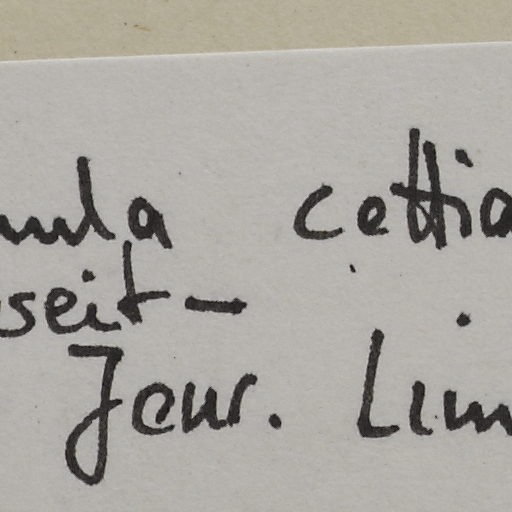 mula cettia
seit-
Jour. Lim